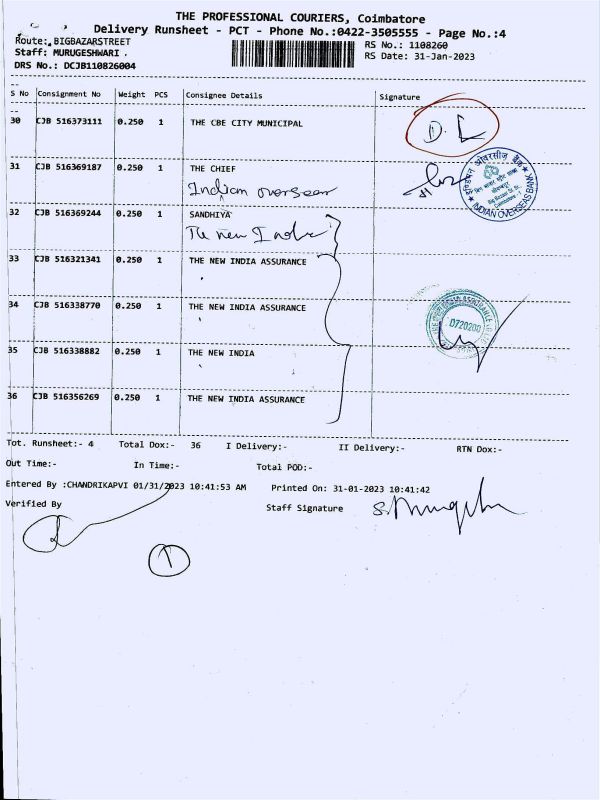 THE PROFESSIONAL COURIERS, Coimbatore
Delivery Runsheet - PCT - Phone No.:0422-3505555 - Page No.:4
Route: BIGBAZARSTREET
RS No.: 1108260
Staff: MURUGESHWARI .
RS Date: 31-Jan-2023
DRS No.: DCJB110826004
S No Consignment No Weight PCS Consignee Details Signature
30 CJB 516373111 0.250 1 THE CBE CITY MUNICIPAL
31 CJB 516369187 0.250 1 THE CHIEF
Indian overseas
INDIAN OVERSEAS BANK
32 CJB 516369244 0.250 1 SANDHIYA
The new India
33 CJB 516321341 0.250 1 THE NEW INDIA ASSURANCE
34 CJB 516338770 0.250 1 THE NEW INDIA ASSURANCE
D720200
35 CJB 516338882 0.250 1 THE NEW INDIA
36 CJB 516356269 0.250 1 THE NEW INDIA ASSURANCE
Tot. Runsheet:- 4 Total Dox:- 36 I Delivery:- II Delivery:- RTN Dox:-
Out Time:- In Time:- Total POD:-
Entered By :CHANDRIKAPVI 01/31/2023 10:41:53 AM Printed On: 31-01-2023 10:41:42
Verified By Staff Signature
1